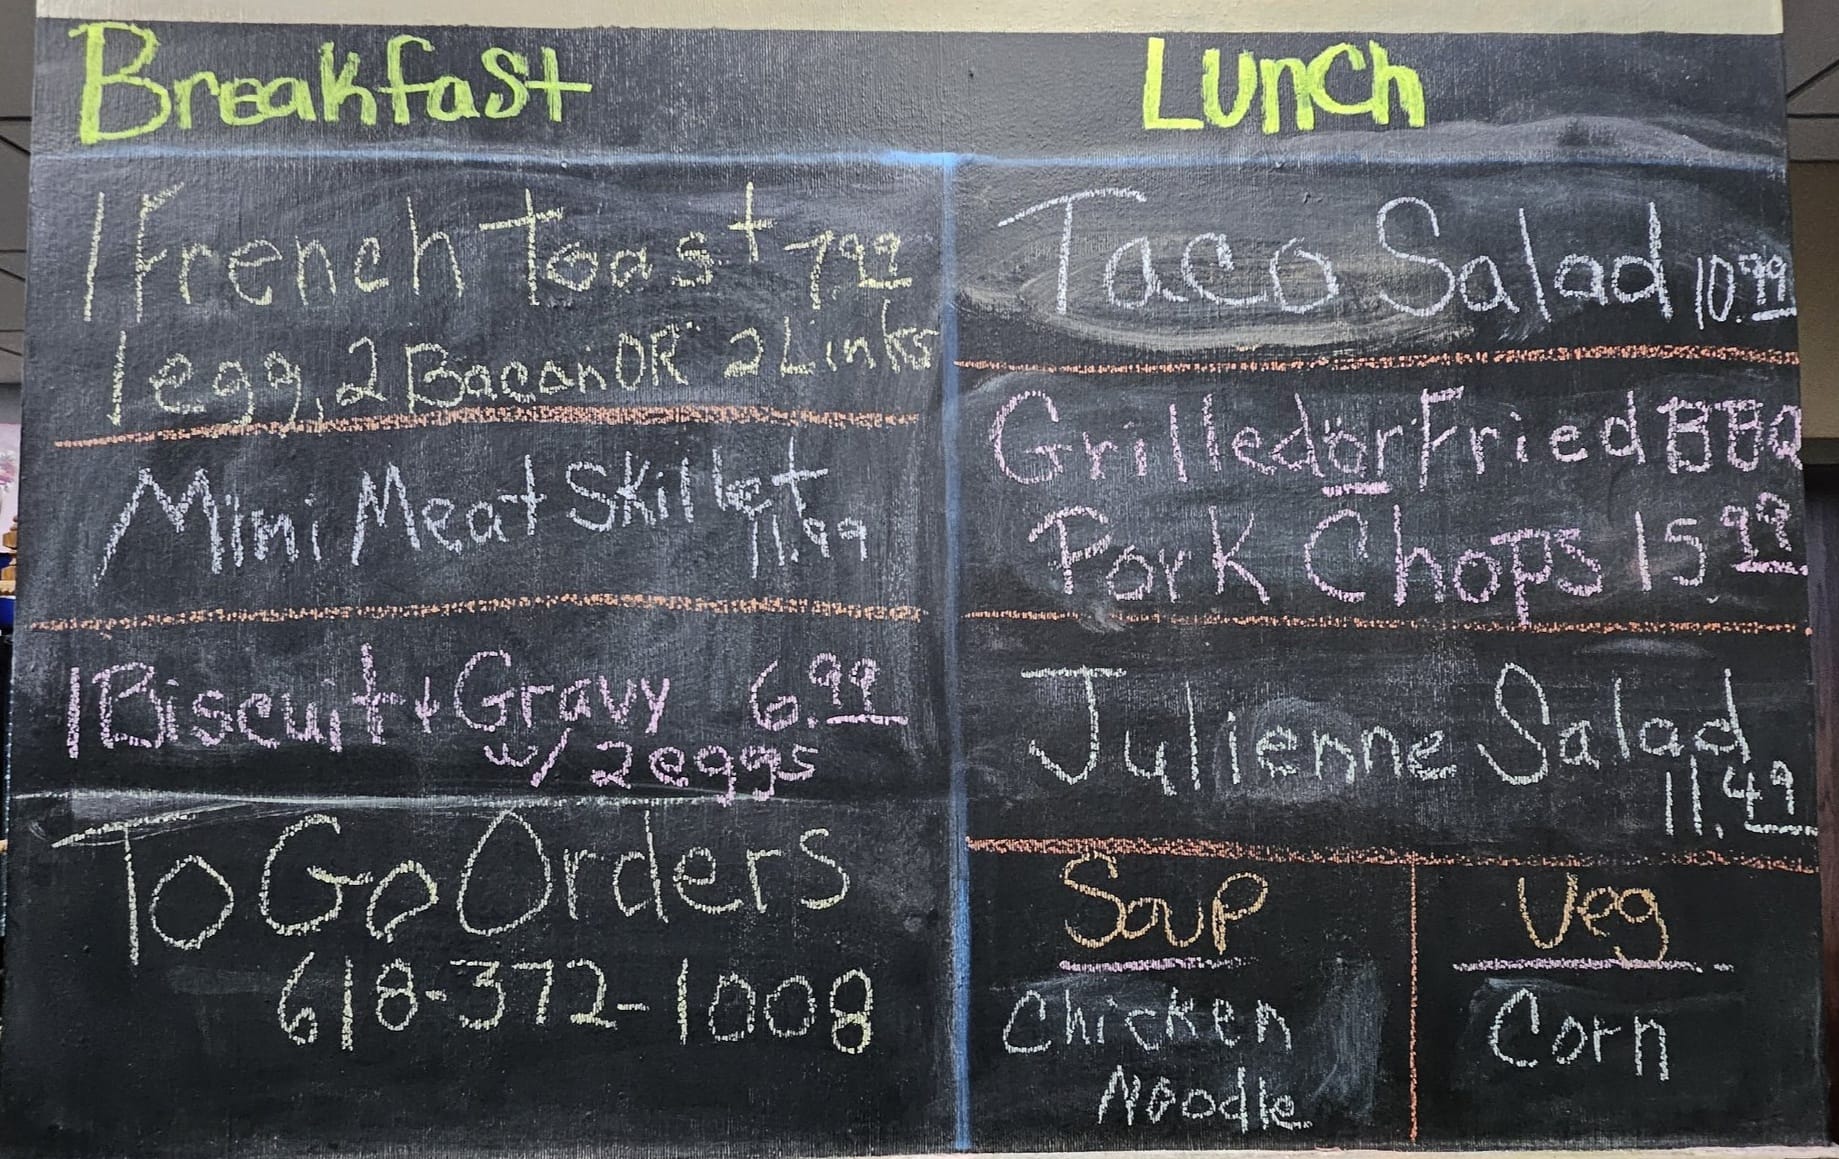 Breakfast
1 French Toast 7.99
1 egg, 2 Bacon OR 2 Links
Mini Meat Skillet
11.99
1 Biscuit + Gravy 6.99
w/ 2 eggs
To Go Orders
618-372-1008
Lunch
Taco Salad 10.99
Grilled or Fried BBQ
Pork Chops 15.99
Julienne Salad
11.49
Soup
Chicken
Noodle
Veg
Corn